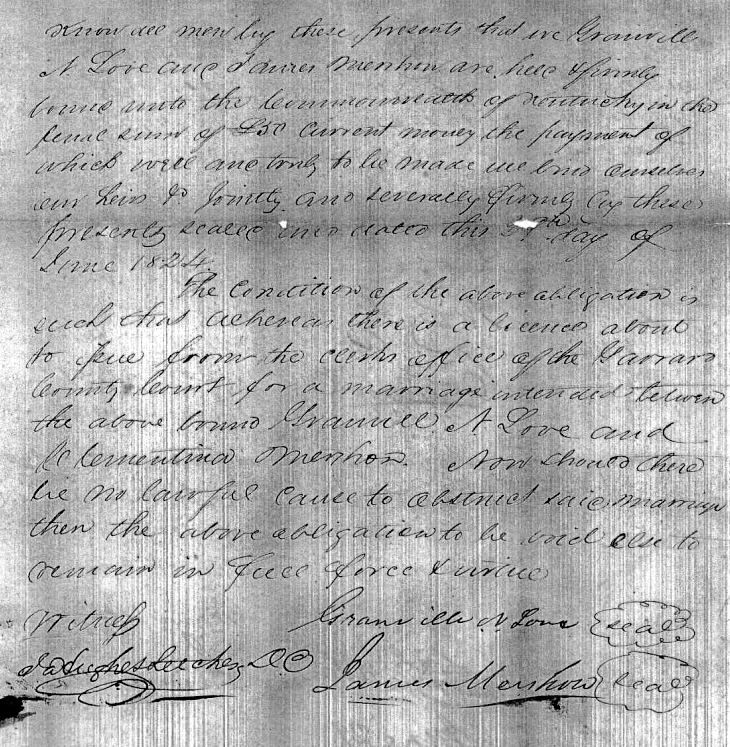 Know all men by these presents that we Granville
N Love and James Mershon are held & firmly
bound unto the Commonwealth of Kentucky in the
penal sum of £50 current money the payment of
which well and truly to be made we bind ourselves
our heirs &c Jointly and severally firmly by these
presents sealed and dated this day of
June 1824
The Condition of the above obligation is
such that whereas there is a licence about
to issue from the clerks office of the Garrard
County Court for a marriage intended between
the above bound Granvill N Love and
Clementina Mershon. Now should there
be no lawful cause to obstruct said marriage
then the above obligation to be void else to
remain in full force & virtue
Witness
Granville N Love seal
Hughes DC
James Mershon seal